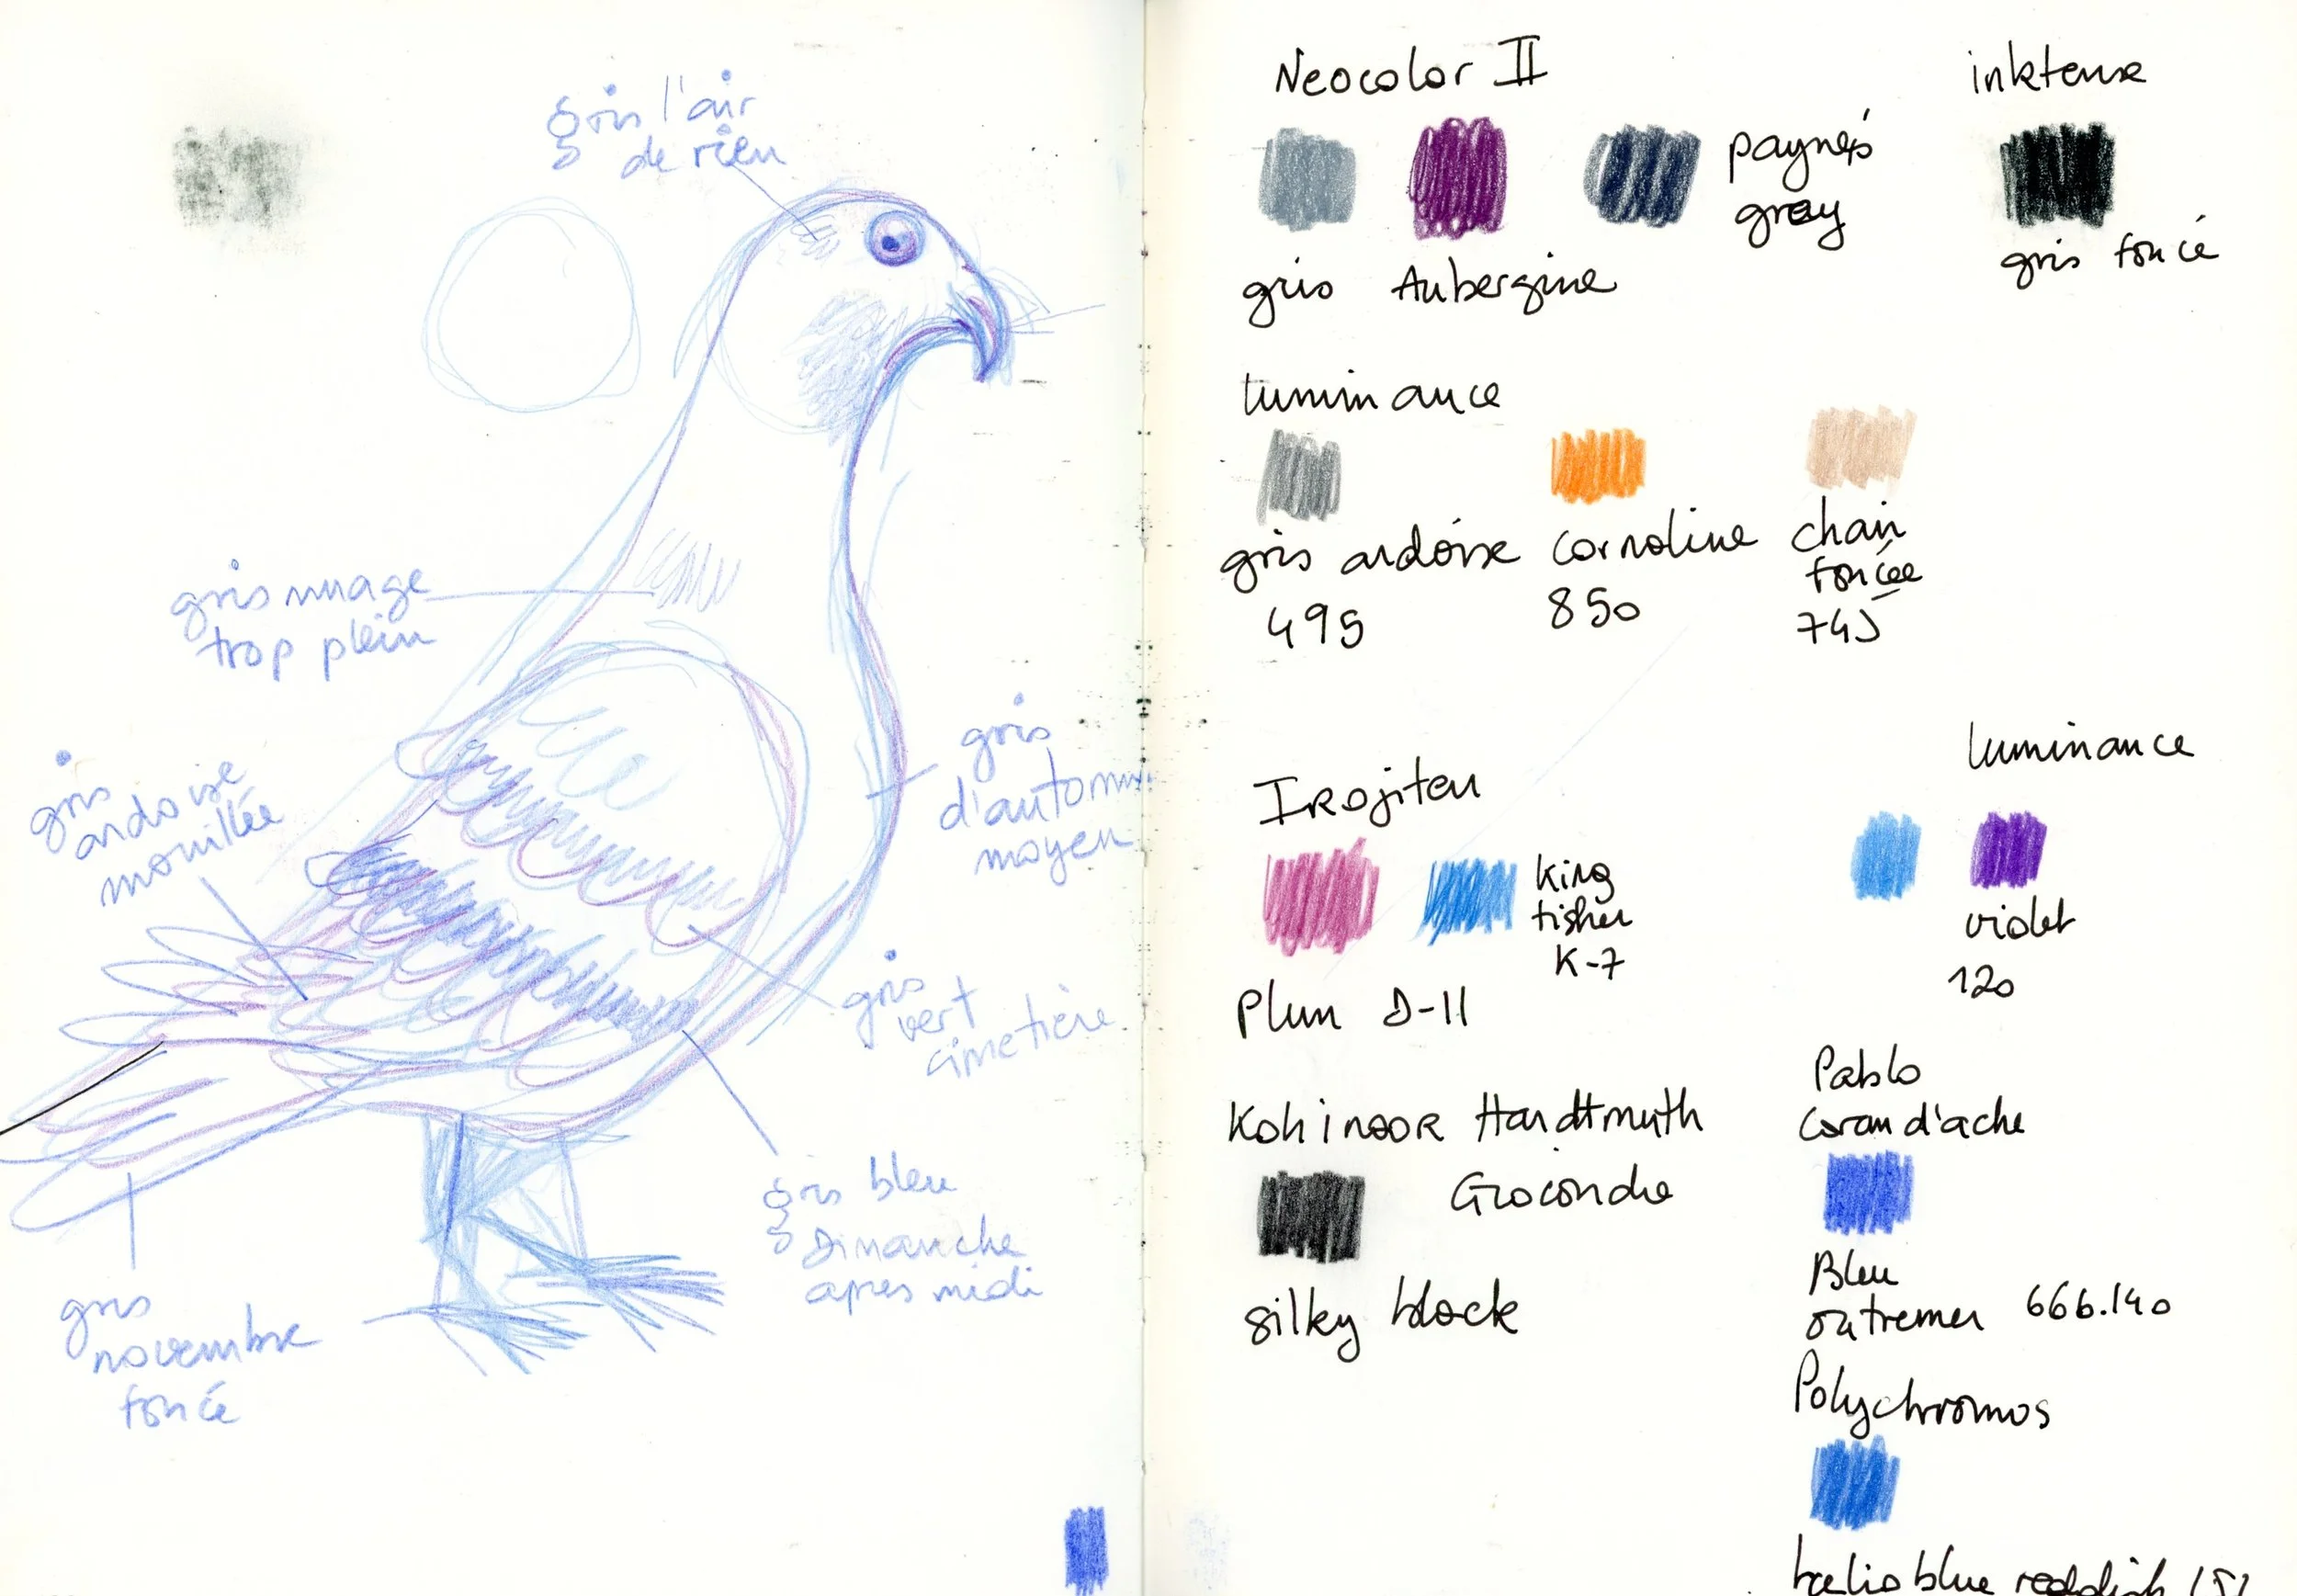 gris l'air
de rien
gris nuage
trop plein
gris
ardoise
mouillée
gris
d'automne
moyen
gris
vert
cimetière
gris bleu
Dimanche
apres midi
gris
novembre
foncé
Neocolor II
payne's
gray
gris Aubergine
inktense
gris foncé
luminance
gris ardoise
495
cornaline
850
chair
foncée
745
Irojiten
king
fisher
K-7
Plum D-11
luminance
violet
120
Kohinoor Hardtmuth
Gioconda
silky black
Pablo
Caran d'ache
Bleu
outremer 666.140
Polychromos
helio blue reddish 151